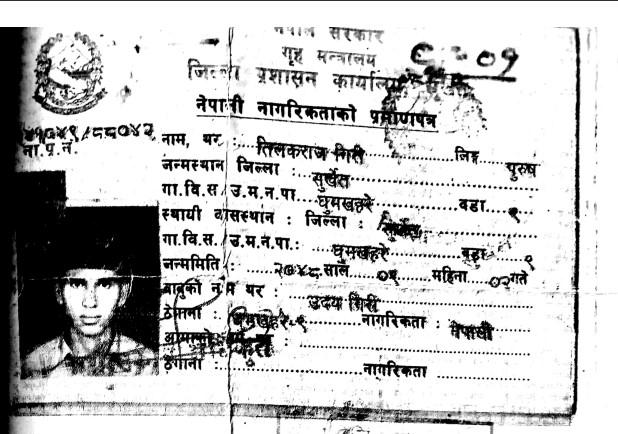 नेपाल सरकार
गृह मन्त्रालय
जिल्ला प्रशासन कार्यालय
नेपाली नागरिकताको प्रमाणपत्र
ना.प्र.नं.
नाम, थर : तिलकराज गिरी लिङ्ग पुरुष
जन्मस्थान जिल्ला : सुर्खेत
गा.वि.स./उ.म.न.पा. घुमखहरे वडा ९
स्थायी वासस्थान : जिल्ला : सुर्खेत
गा.वि.स./उ.म.न.पा.: घुमखहरे वडा ९
जन्ममिति : २०४८ साल महिना ०२ गते
बाबुको नाम थर : उदय गिरी
ठेगाना : घुमखहरे-९ नागरिकता : नेपाली
ठेगाना : नागरिकता